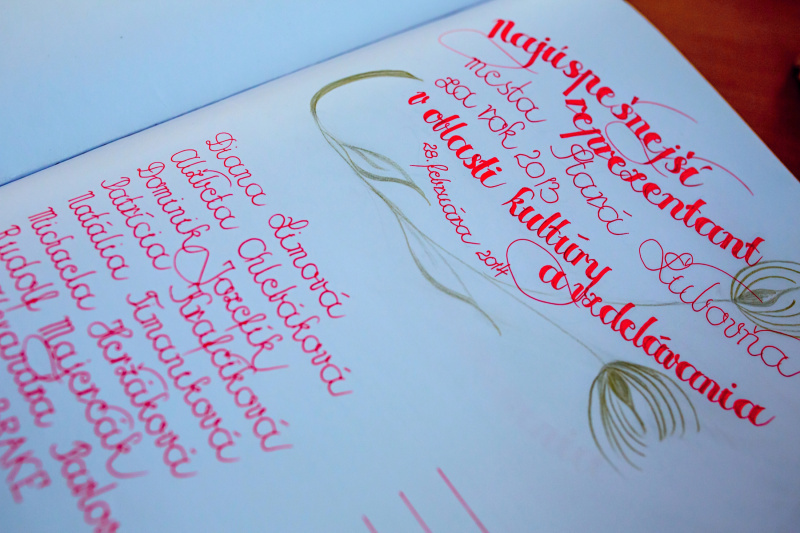 najúspešnejší
reprezentant
mesta Stará Ľubovňa
za rok 2013
v oblasti kultúry
a vzdelávania
28. februára 2014
Diana Limová
Alžbeta Chlebáková
Dominik Jozefík
Patrícia Krafčíková
Natália Timaníková
Michaela Heržáková
Rudolf Majerčák